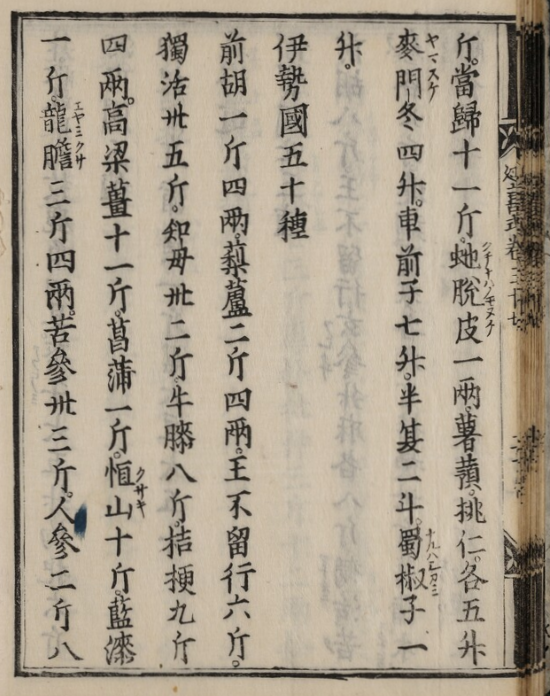 斤。當歸十一斤。虵脫皮一兩。薯蕷。挑仁。各五升
麥門冬四升。車前子七升。半夏二斗。蜀椒子一
升。
伊勢國五十種
前胡一斤四兩。藜蘆二斤四兩。王不留行六斤。
獨活卅五斤。知毋卅二斤。牛膝八斤。桔梗九斤
四兩。高梁薑十一斤。菖蒲一斤。恒山十斤。藍漆
一斤。龍膽三斤四兩。苦參卅三斤。人參二斤八
ヤマスケ
クサキ
エヤミクサ